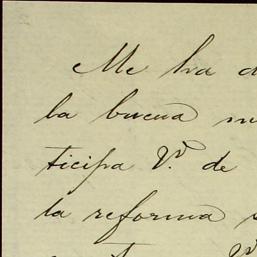 Me ha
la buena
ticipa V.d de
la reforma